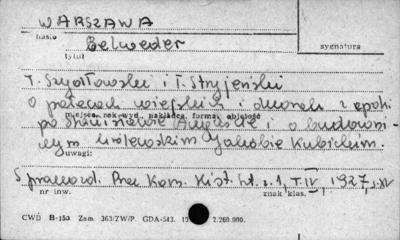 WARSZAWA
hasło
Belweder
tytuł
sygnatura
T. Szydłowski i T. Stryjeński
O pałacach wiejskich i dworach z epoki
miejsce, rok wyd., nakładca, forma, objętość
po Stanisławie Auguście i o budowni-
czym królewskim Jakóbie Kubickim.
uwagi:
Sprawozd. Prac Kom. Hist. Szt. z. 1, T. IV, 1927, s. XV
nr inw.
znak klas.
CWD B-153 Zam. 363/ZW/P. GDA-543. 2.260.000.